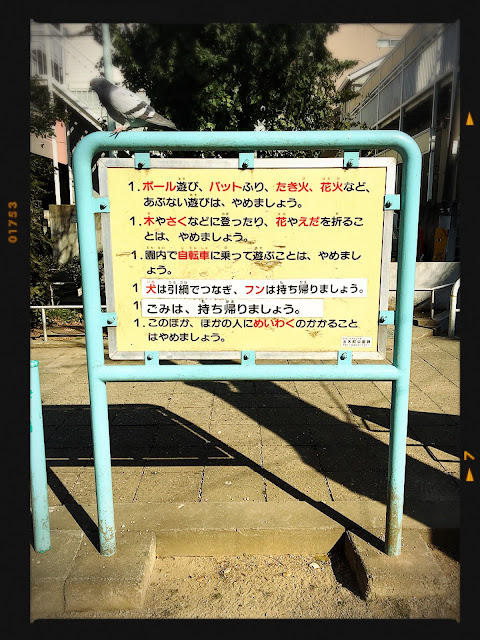 1. ボール遊び、バットふり、たき火、花火など、
あぶない遊びは、やめましょう。
1. 木やさくなどに登ったり、花やえだを折るこ
とは、やめましょう。
1. 園内で自転車に乗って遊ぶことは、やめまし
ょう。
1 犬は引綱でつなぎ、フンは持ち帰りましょう。
1 ごみは、持ち帰りましょう。
1. このほか、ほかの人にめいわくのかかること
はやめましょう。
01753
7